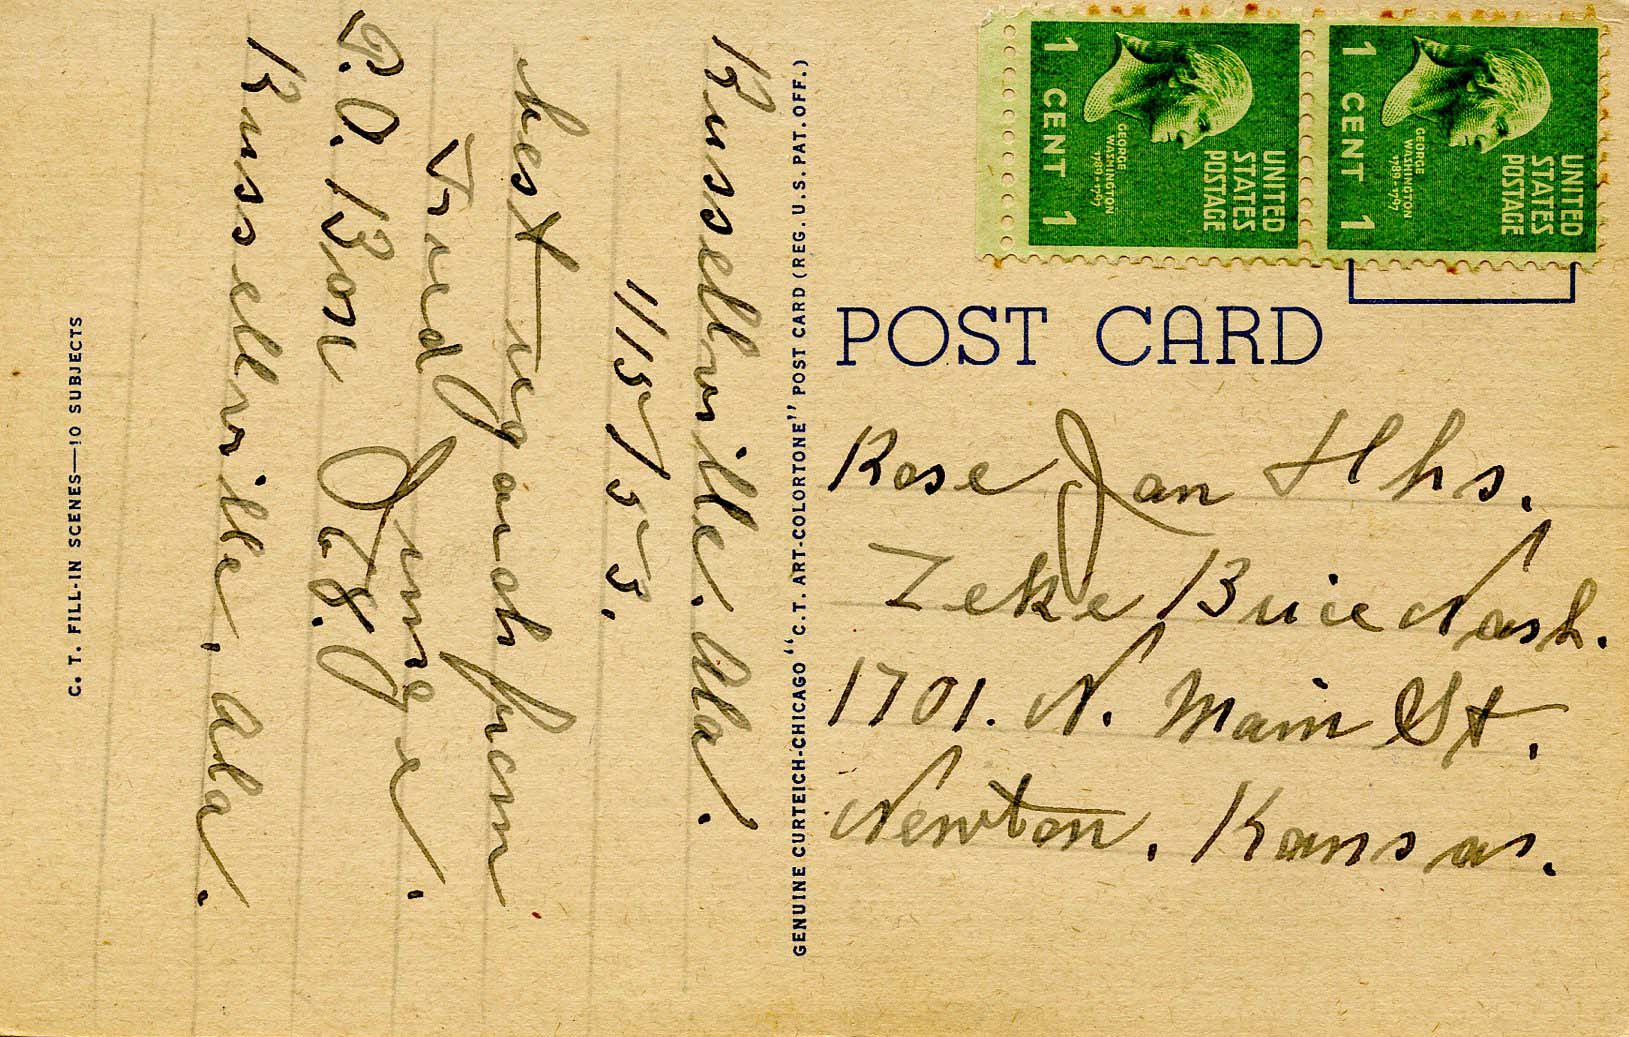 UNITED STATES POSTAGE
GEORGE WASHINGTON
1789-1797
1 CENT 1
UNITED STATES POSTAGE
GEORGE WASHINGTON
1789-1797
1 CENT 1
POST CARD
Rose Jan Hhs.
Zeke Brice Nash.
1701. N. Main St.
Newton. Kansas.
GENUINE CURTEICH-CHICAGO "C.T. ART-COLORTONE" POST CARD (REG. U.S. PAT. OFF.)
Russellville. Ala.
1/15/55.
best regards from
Fried Junge.
P.O. Box
Russellville, Ala.
C. T. FILL-IN SCENES—10 SUBJECTS